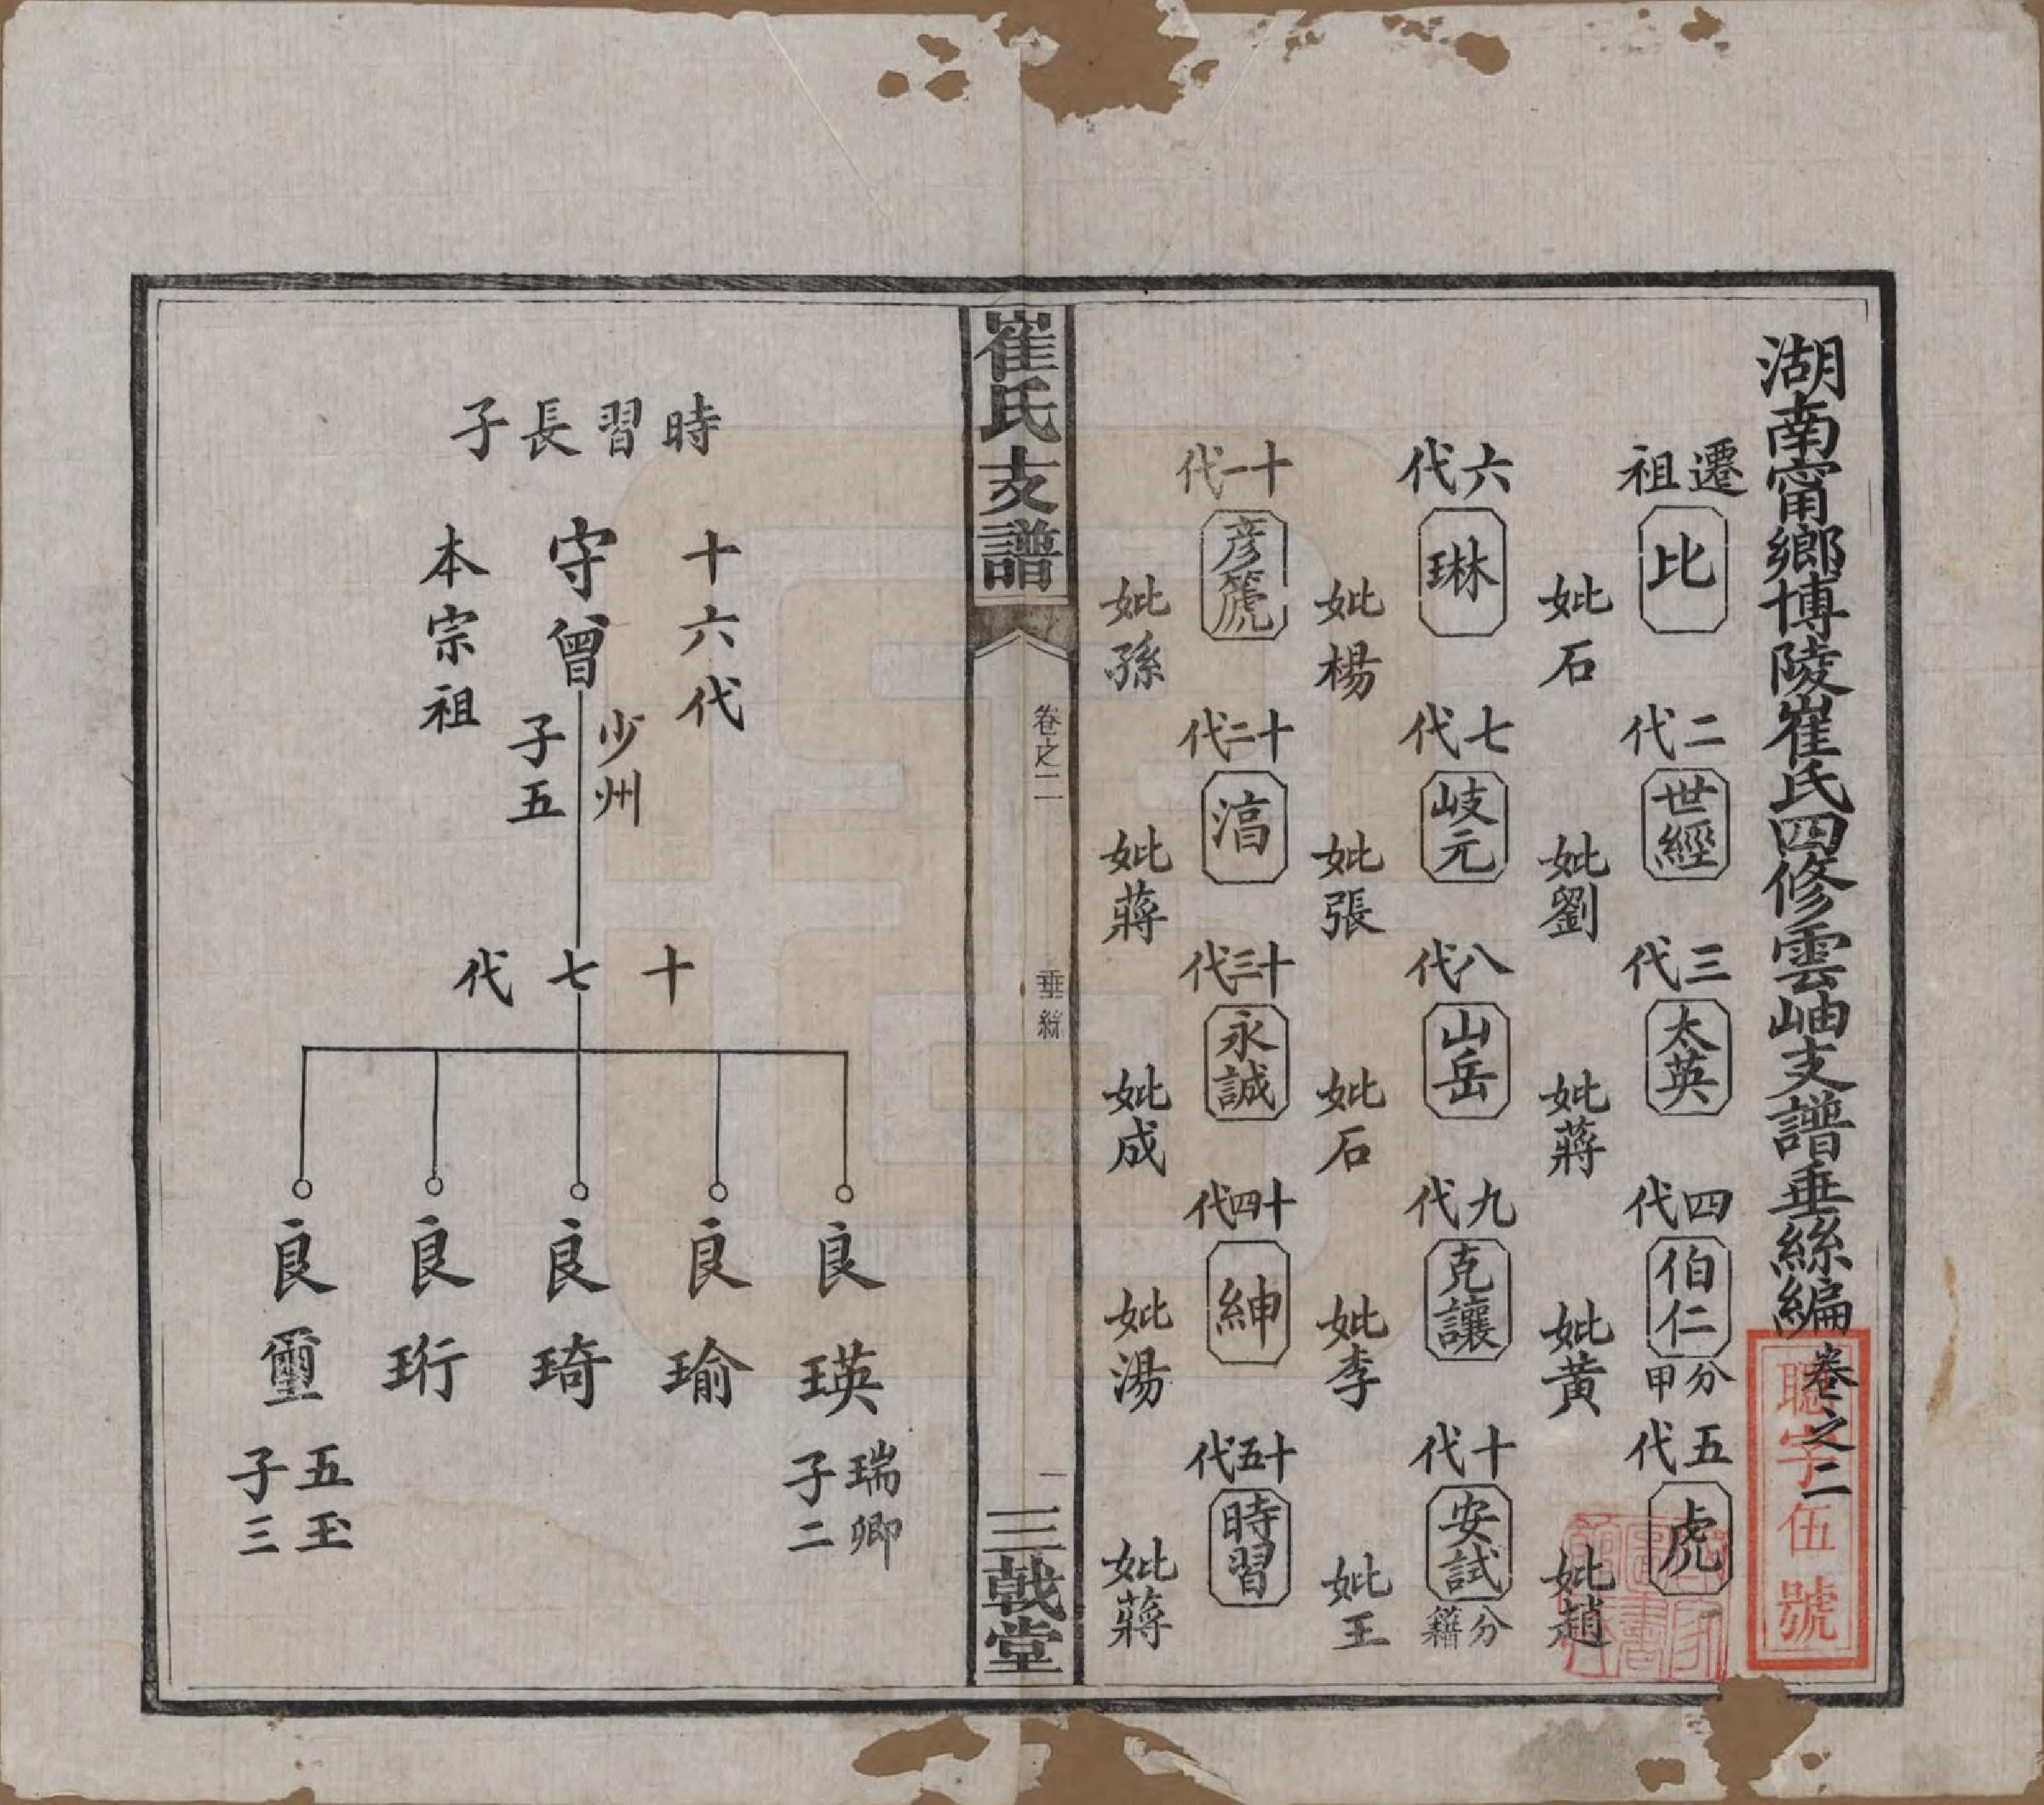 湖南甯鄉博陵崔氏四修雲岫支譜垂絲編卷之二
聰字伍號
遷祖 比
妣石
二代 世經
妣劉
三代 太英
妣蔣
四代 伯仁 分甲
妣黃
五代 虎
妣趙
六代 琳
妣楊
七代 岐元
妣張
八代 山岳
妣石
九代 克讓
妣李
十代 安試 分籍
妣王
十一代 彦箎
妣孫
十二代 湻
妣蔣
十三代 永誠
妣成
十四代 紳
妣湯
十五代 時習
妣蔣
崔氏支譜
卷之二
垂絲
一
三戟堂
時習長子
十六代
守曾
少州
子五
本宗祖
十七代
良瑛
瑞卿
子二
良瑜
良琦
良珩
良璽
五玉
子三